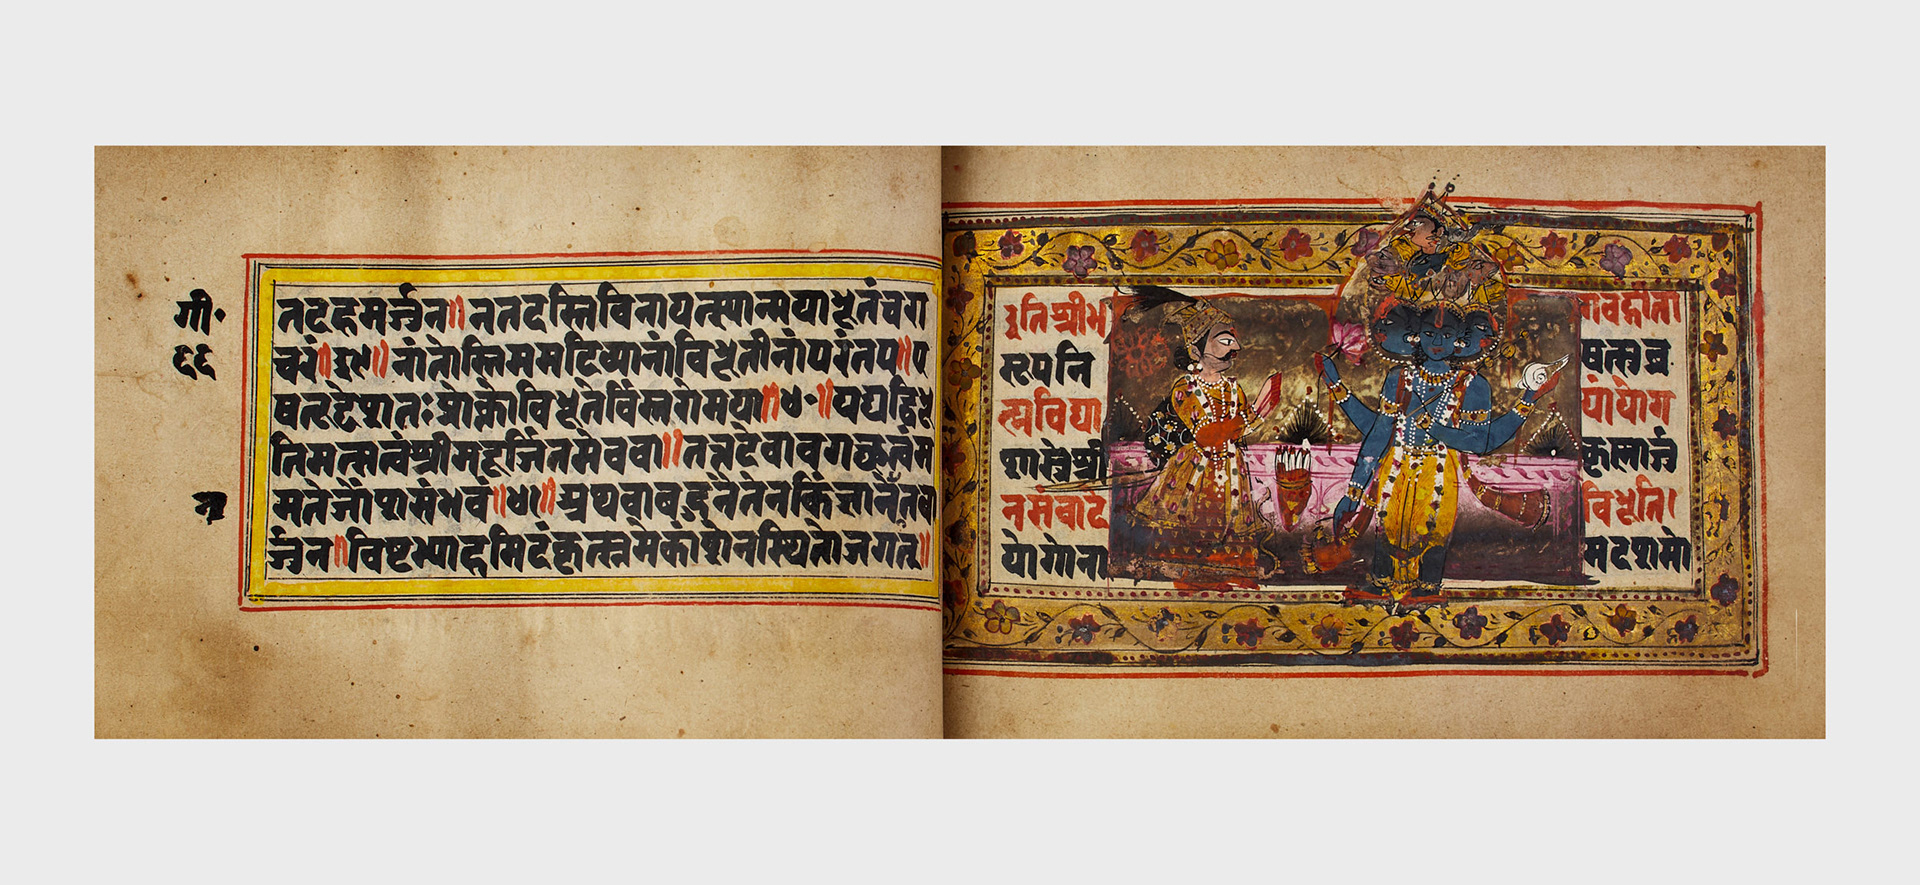 गी॰
६६
तदहमर्ज्जुन॥नतदस्तिविनायत्स्यान्मयाभूतंचरा
चरं॥३९॥नांतोस्तिममदिव्यानांविभूतीनांपरंतप॥ए
षतूद्देशतःप्रोक्तोविभूतेर्विस्तरोमया॥४०॥यद्यद्विभू
तिमत्सत्वंश्रीमदूर्जितमेववा॥तत्तदेवावगच्छत्वंम
मतेजोंशसंभवं॥४१॥अथवाबहुनैतेनकिंज्ञातेनतवा
र्ज्जुन॥विष्टभ्याहमिदंकृत्स्नमेकांशेनस्थितोजगत्॥
इतिश्रीभ गवद्गीता
सूपनि षत्सुब्र
ह्मविद्या यांयोग
शास्त्रेश्री कृष्णार्जु
नसंवादे विभूति
योगोना मदशमो